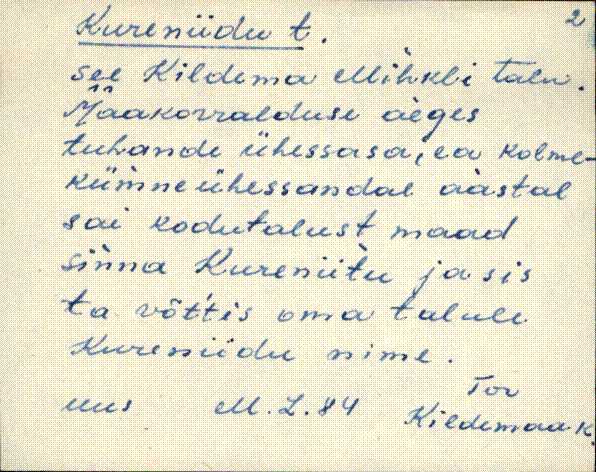 2
Kureniidu t.
see Kildema Mihkli talu.
Maakorralduse aeges
tuhande ühessasa, ea kolme-
kümneühessandal aastal
sai kodutalust maad
sinna Kureniitu ja sis
ta võttis oma talule
Kureniidu nime.
uus M.L.84 Tor
Kildemaa k.